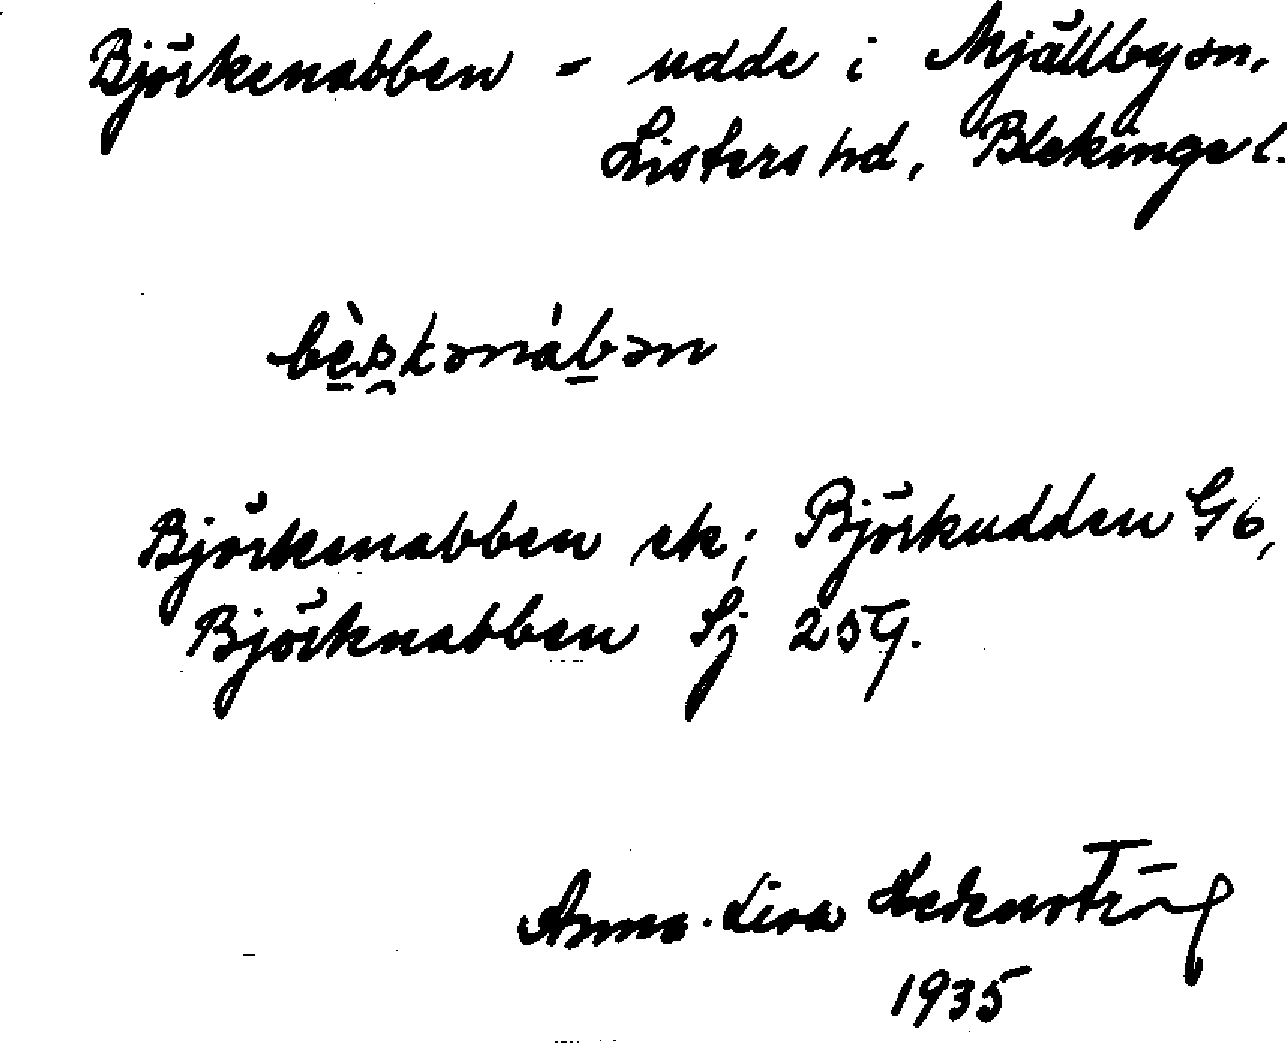 Björkenabben - udde i Mjällby sn.
Listers hd, Blekinge l.
Björkenabben ek; Björkudden Gb,
Björknabben Sj 259.
Anna-Lisa Hedenström
1935